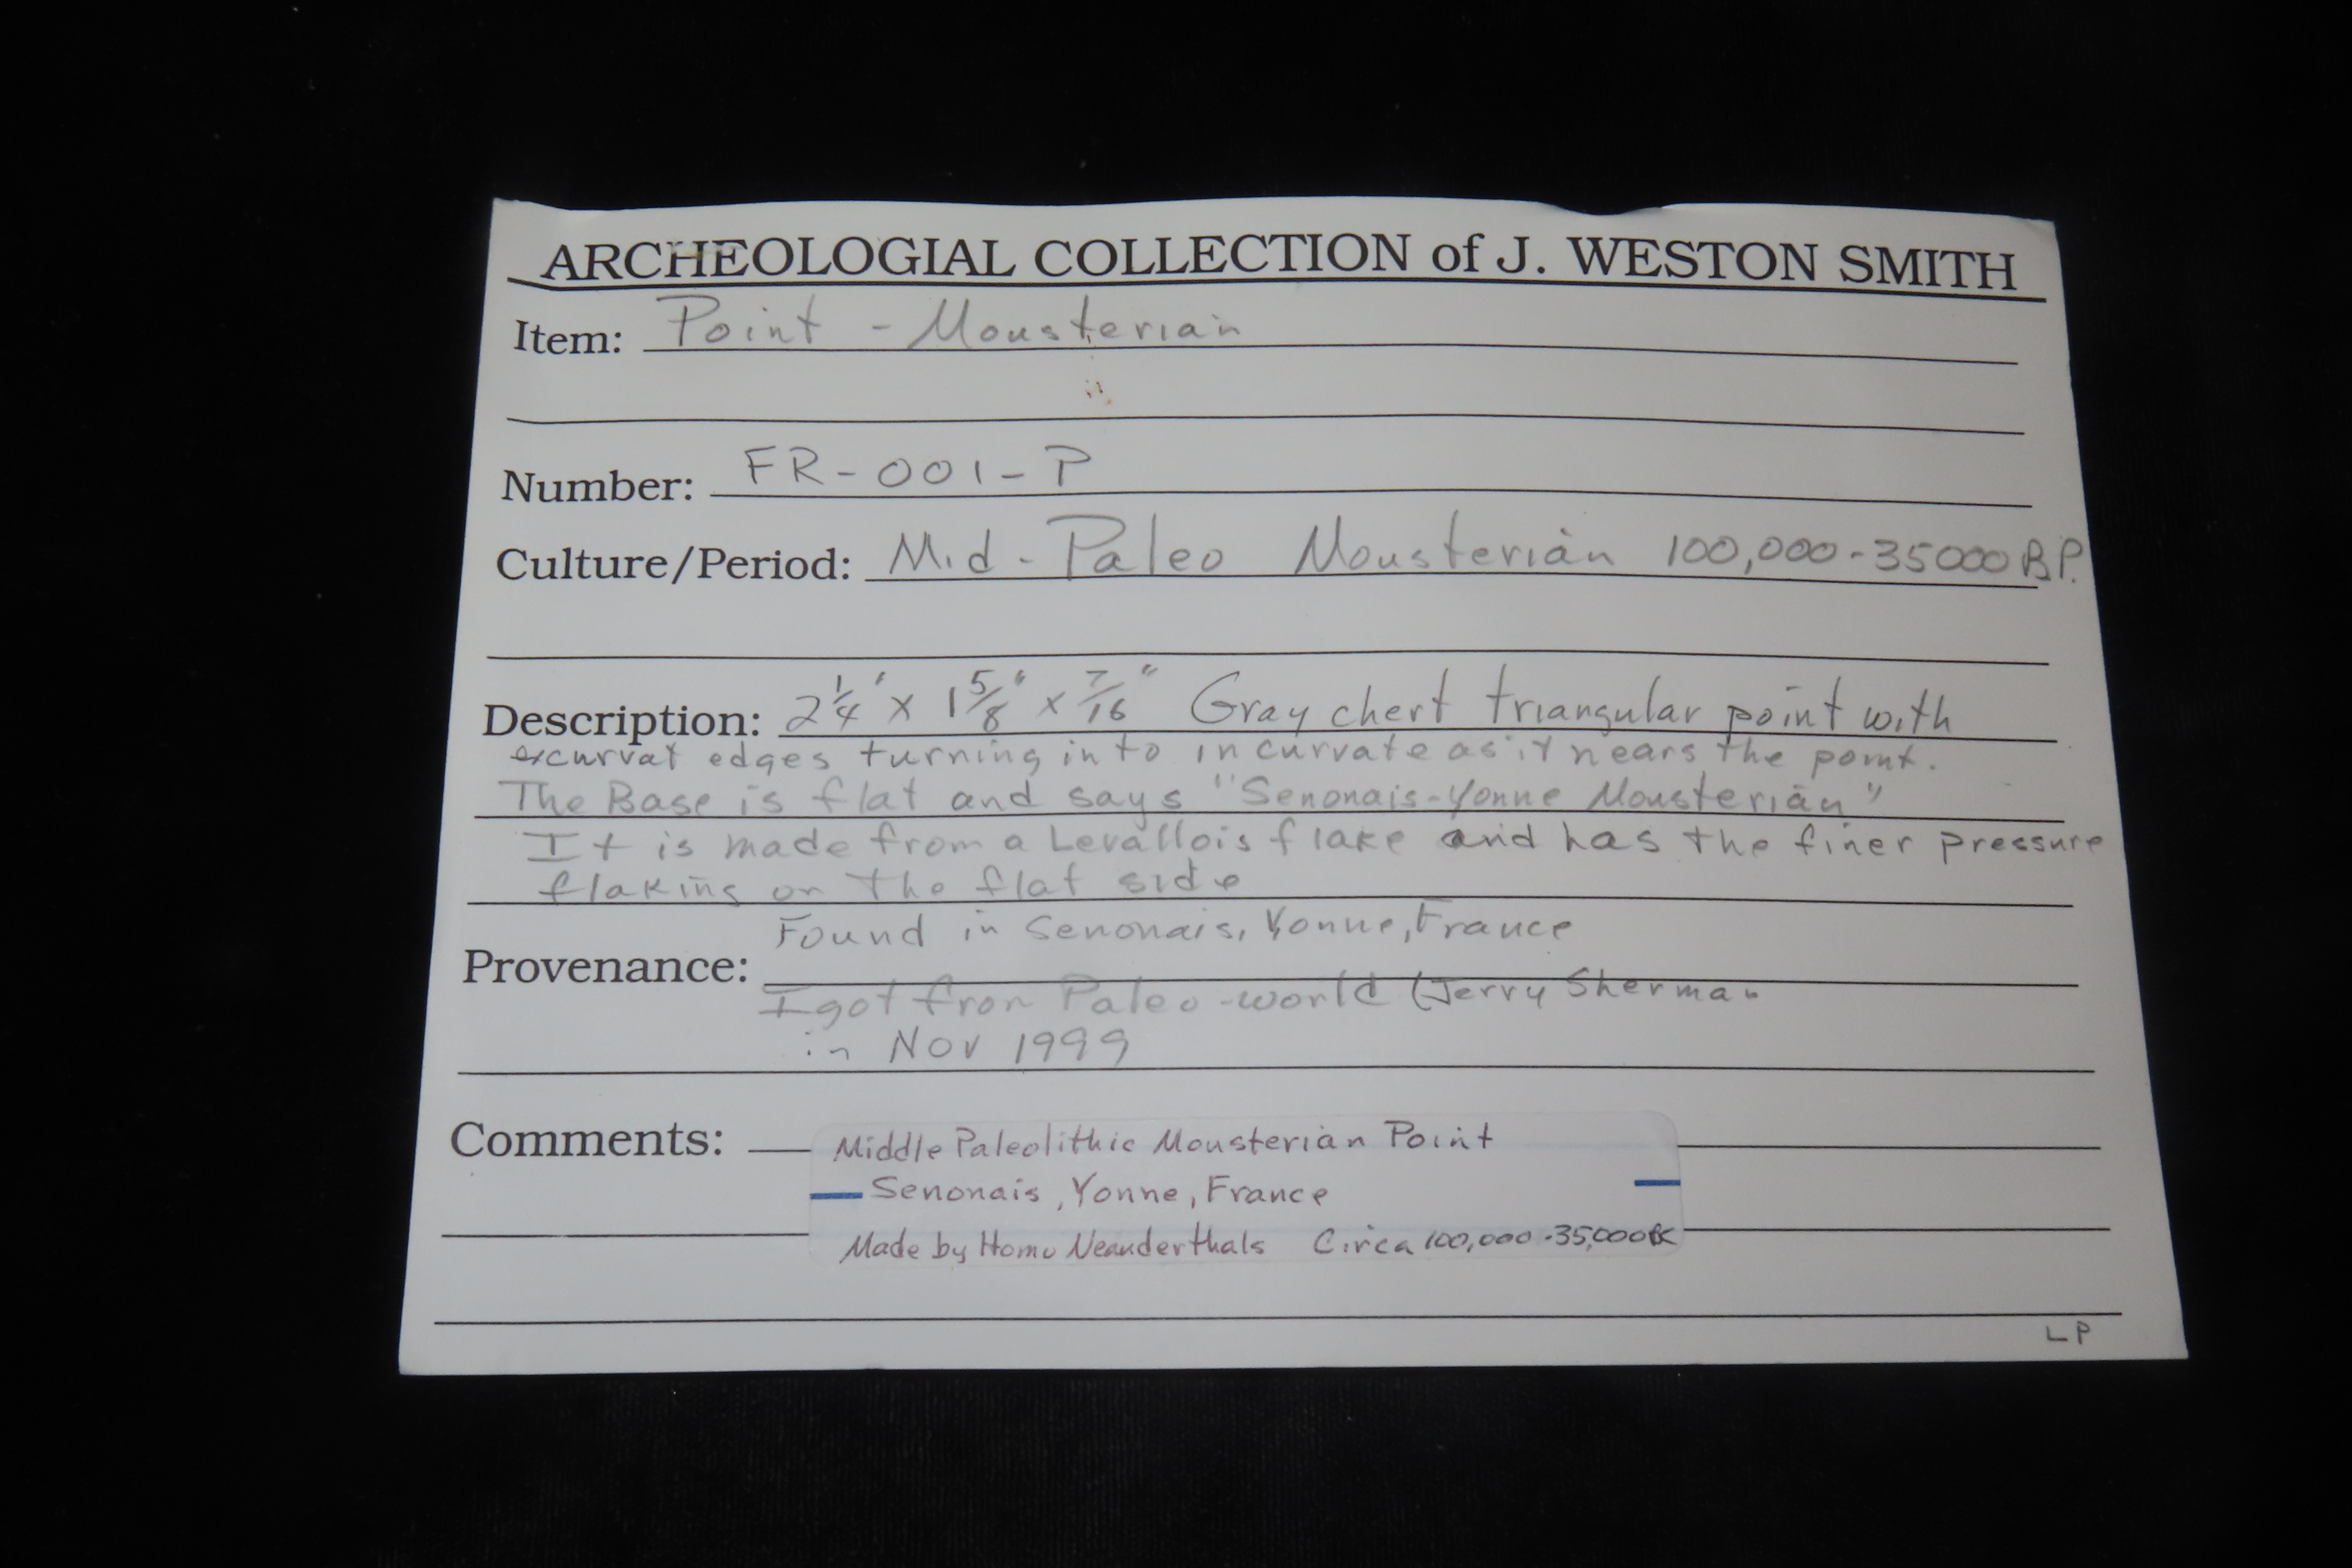 ARCHEOLOGIAL COLLECTION of J. WESTON SMITH
Item: Point - Mousterian
Number: FR-001-P
Culture/Period: Mid-Paleo Mousterian 100,000-35000 B.P.
Description: 2 1/4" x 1 5/8" x 7/16" Gray chert triangular point with
excurvat edges turning into incurvate as it nears the point.
The Base is flat and says "Senonais-Yonne Mousterian"
It is made from a Levallois flake and has the finer pressure
flaking on the flat side
Found in Senonais, Yonne, France
Provenance:
I got from Paleo-world (Jerry Sherman
in Nov 1999
Comments: Middle Paleolithic Mousterian Point
Senonais, Yonne, France
Made by Homo Neanderthals Circa 100,000-35,000BC
LP